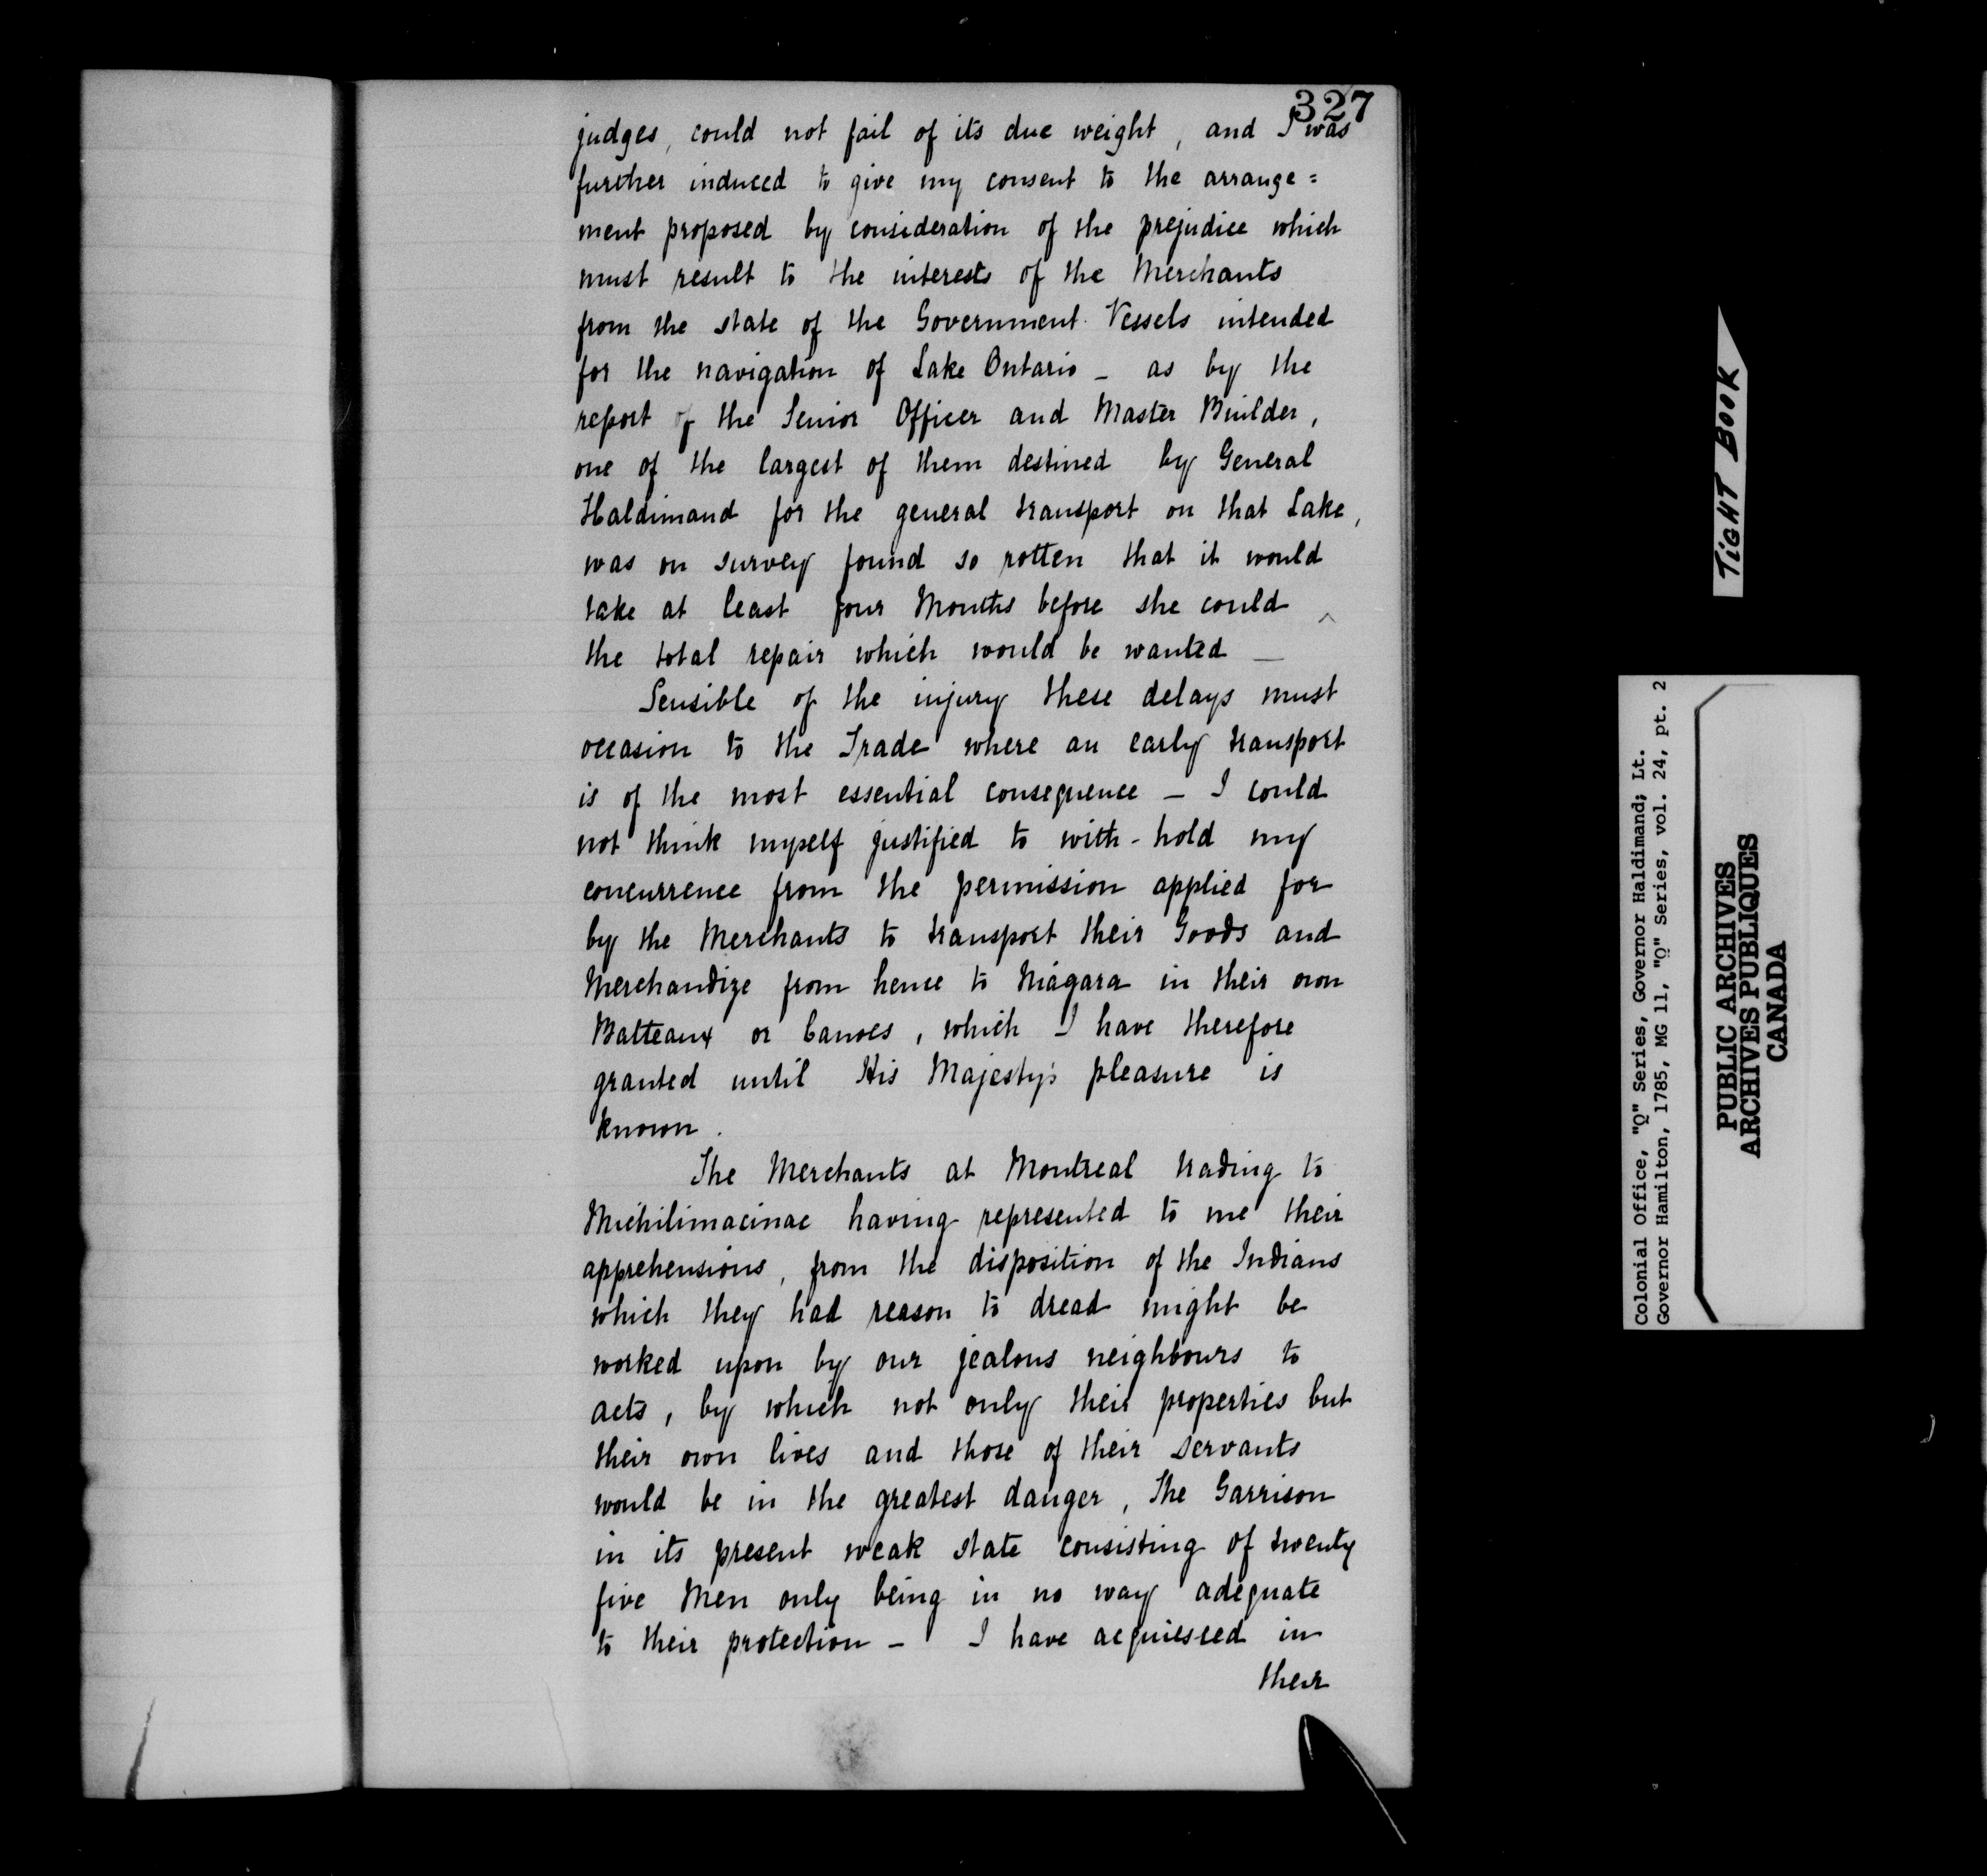 327
judges, could not fail of its due weight, and I was
further induced to give my consent to the arrange=
ment proposed by consideration of the prejudice which
must result to the interests of the Merchants
from the state of the Government Vessels intended
for the navigation of Lake Ontario _ as by the
report of the Senior Officer and Master Builder,
one of the largest of them destined by General
Haldimand for the general transport on that Lake,
was on survey found so rotten that it would
take at least four Months before she could ^
the total repair which would be wanted _
Sensible of the injury these delays must
occasion to the Trade where an early transport
is of the most essential consequence _ I could
not think myself justified to with-hold my
concurrence from the permission applied for
by the Merchants to transport their Goods and
Merchandize from hence to Niagara in their own
Batteaux or Canoes, which I have therefore
granted until His Majesty's pleasure is
known.
The Merchants at Montreal trading to
Michilimacinac having represented to me their
apprehensions, from the disposition of the Indians
which they had reason to dread might be
worked upon by our jealous neighbours to
acts, by which not only their properties but
their own lives and those of their servants
would be in the greatest danger, The Garrison
in its present weak state consisting of twenty
five Men only being in no way adequate
to their protection _ I have acquiesced in
their
TIGHT BOOK
Colonial Office, "Q" Series, Governor Haldimand; Lt.
Governor Hamilton, 1785, MG 11, "Q" Series, vol. 24, pt. 2
PUBLIC ARCHIVES
ARCHIVES PUBLIQUES
CANADA